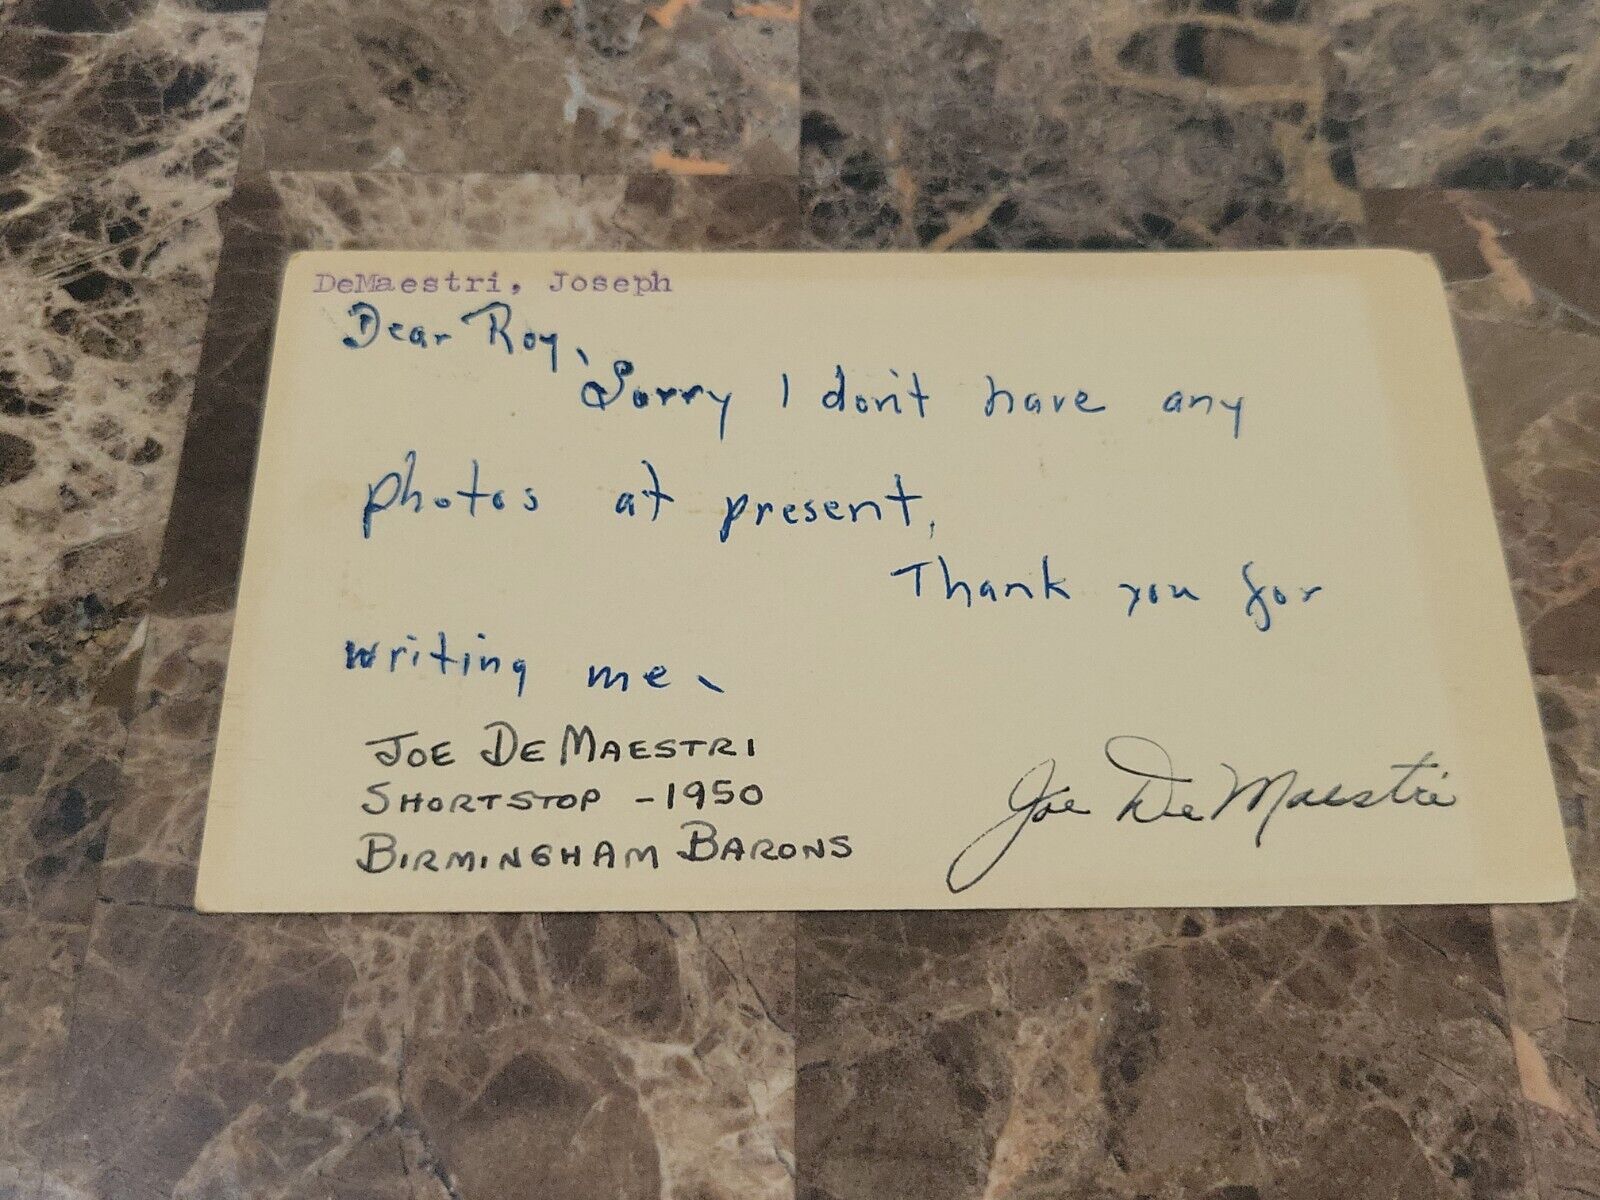 DeMaestri, Joseph
Dear Roy,
Sorry I don't have any
photos at present,
Thank you for
writing me.
JOE DEMAESTRI
SHORTSTOP - 1950
BIRMINGHAM BARONS
Joe DeMaestri